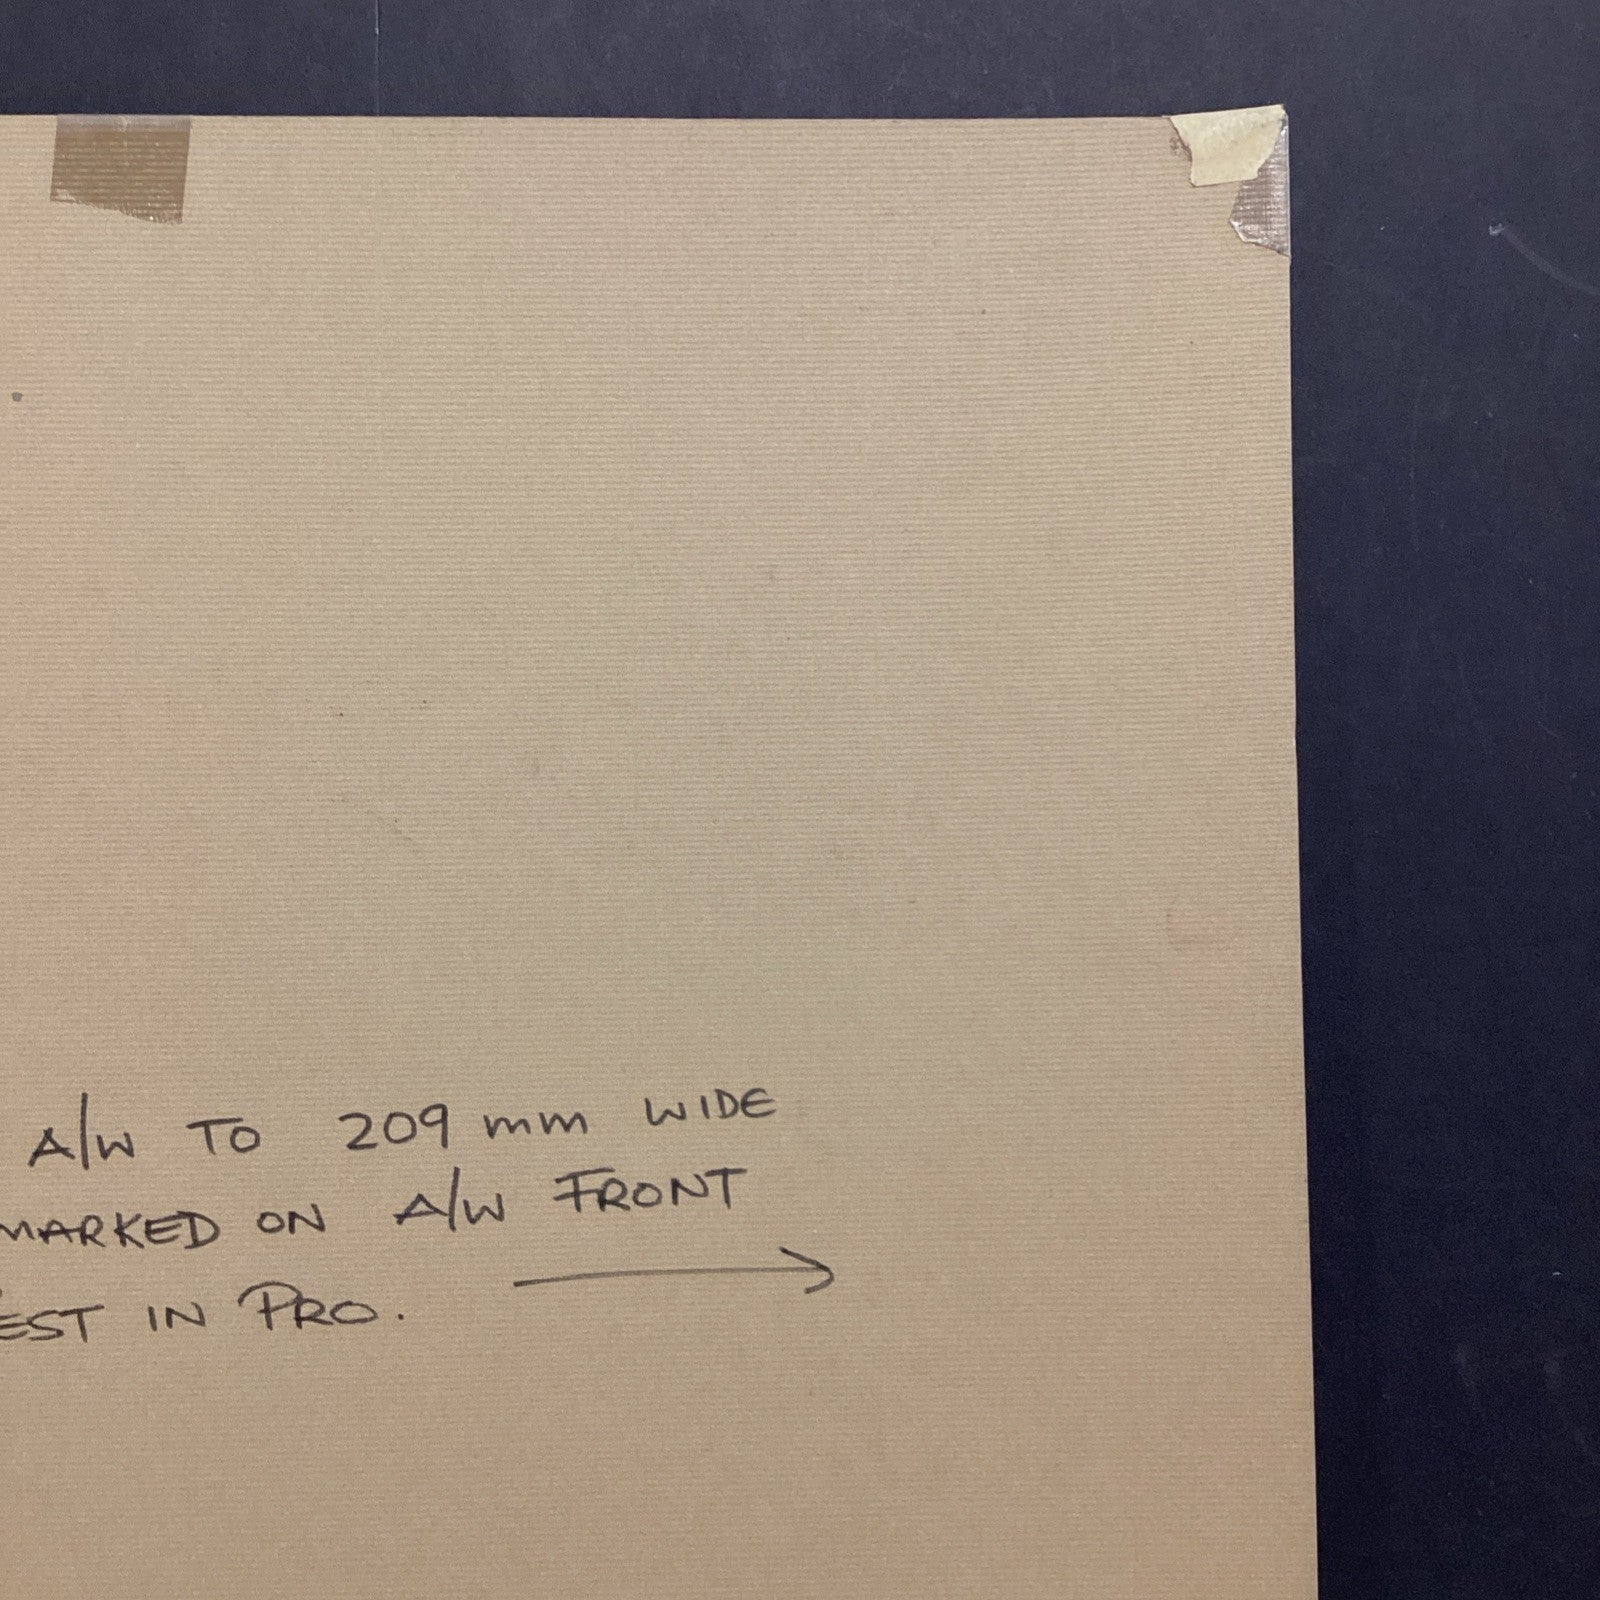 A/W TO 209 mm WIDE
MARKED ON A/W FRONT
EST IN PRO. →